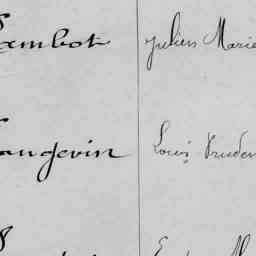 ambot Julien Marie
angevin Louis Pruden